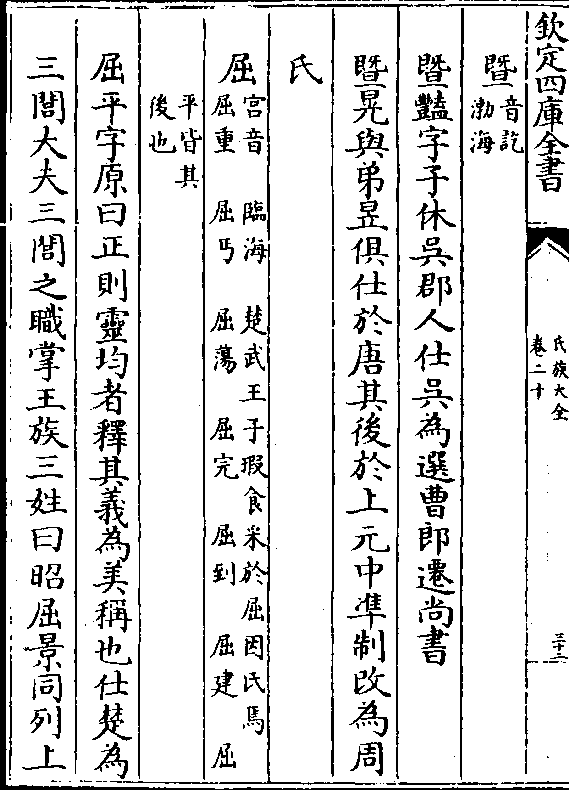 欽定四庫全書
氏族大全
卷二十
三十二
暨
音訖
渤海
暨豔字子休吳郡人仕吳為選曹郎遷尚書
暨晃與弟昱俱仕於唐其後於上元中準制改為周
氏
屈
宮音 臨海 楚武王子瑕食采於屈因氏焉
屈重 屈丐 屈蕩 屈完 屈到 屈建 屈
平皆其
後也
屈平字原曰正則靈均者釋其義為美稱也仕楚為
三閭大夫三閭之職掌王族三姓曰昭屈景同列上